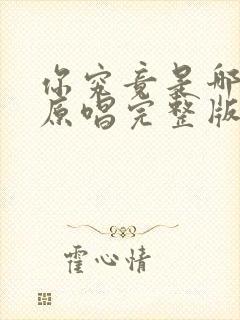 你究竟是哪
原唱完整版
霍心情